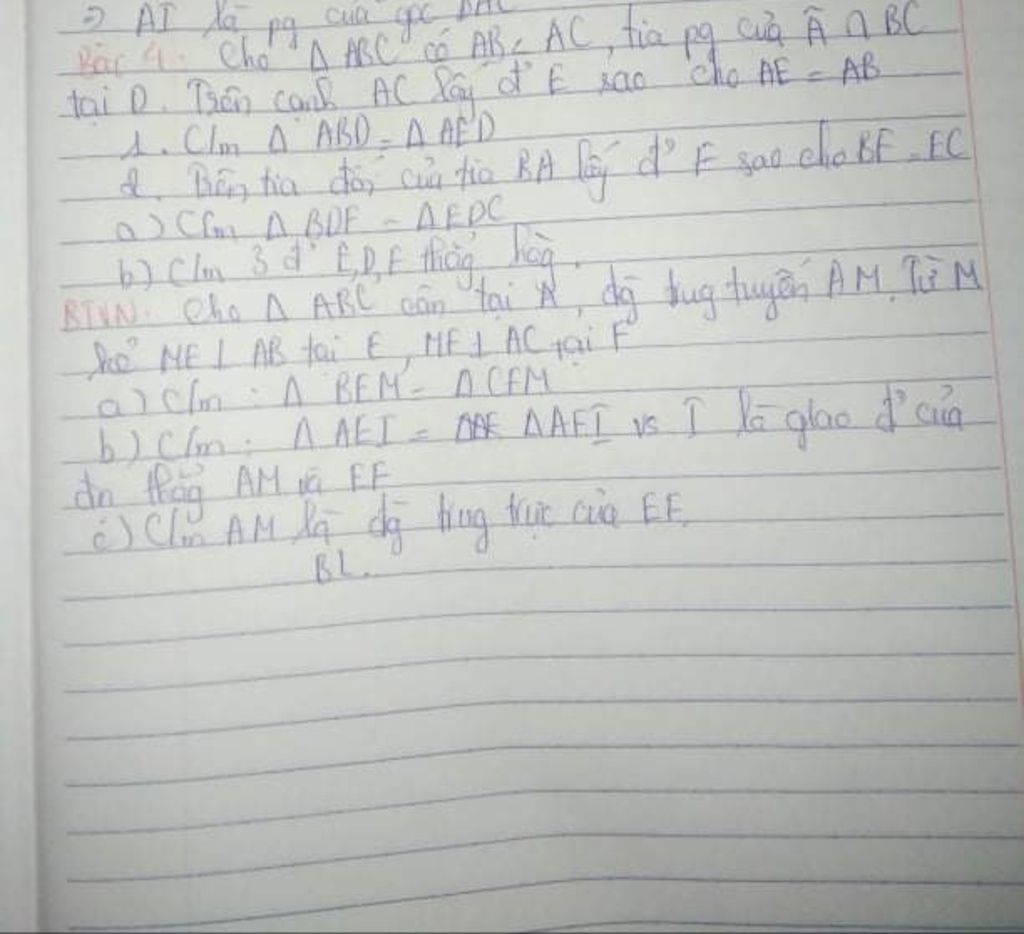 => AI là pg của góc BAC
Bài 4: Cho Δ ABC có AB < AC, tia pg của Â ∩ BC
tại D. Trên cạnh AC lấy đ' E sao cho AE = AB
1. C/m Δ ABD = Δ AED
2. Trên tia đối của tia BA lấy đ' F sao cho BF = EC
a) C/m Δ BDF = Δ EDC
b) C/m 3 đ' E, D, F thẳng hàng.
BTVN: Cho Δ ABC cân tại A, đg trug tuyến AM. Từ M
kẻ ME ⊥ AB tại E, MF ⊥ AC tại F
a) C/m: Δ BEM = Δ CFM
b) C/m: Δ AEI = Δ AFI vs I là giao đ' của
đn thẳg AM và EF
c) C/m AM là đg trug trực của EF.
BL.